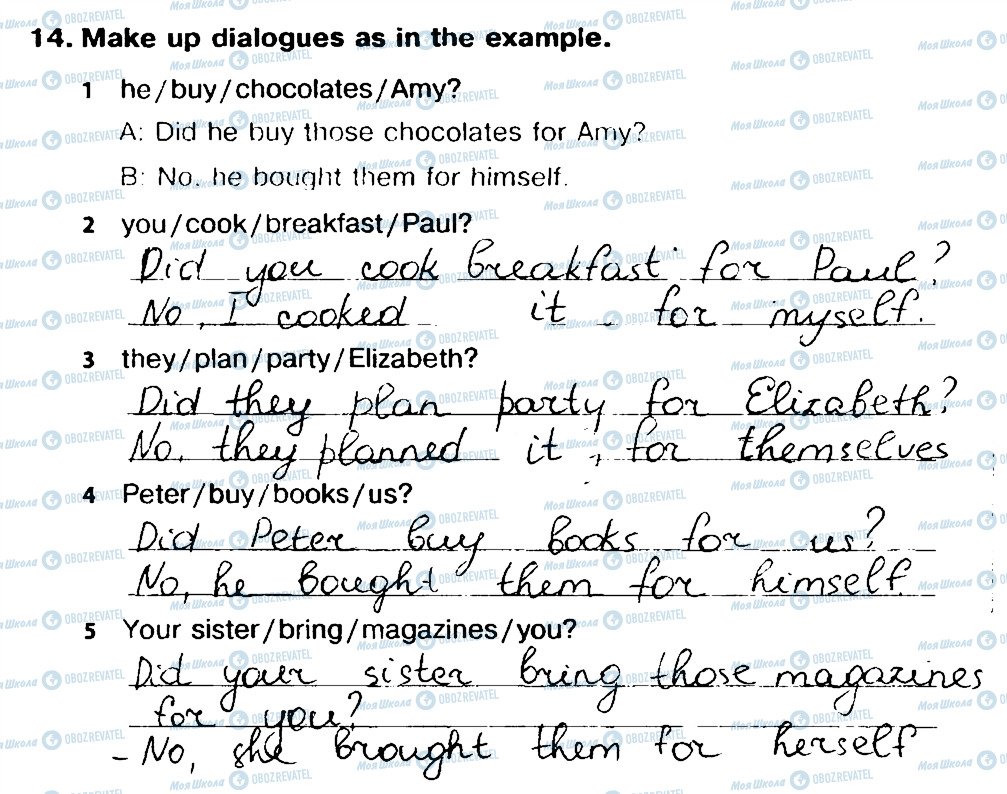 14. Make up dialogues as in the example.
1 he/buy/chocolates/Amy?
A: Did he buy those chocolates for Amy?
B: No, he bought them for himself.
2 you/cook/breakfast/Paul?
Did you cook breakfast for Paul?
No, I cooked it for myself.
3 they/plan/party/Elizabeth?
Did they plan party for Elizabeth?
No, they planned it, for themselves
4 Peter/buy/books/us?
Did Peter buy books for us?
No, he bought them for himself.
5 Your sister/bring/magazines/you?
Did your sister bring those magazines
for you?
- No, she brought them for herself
Моя Школа OBOZREVATEL